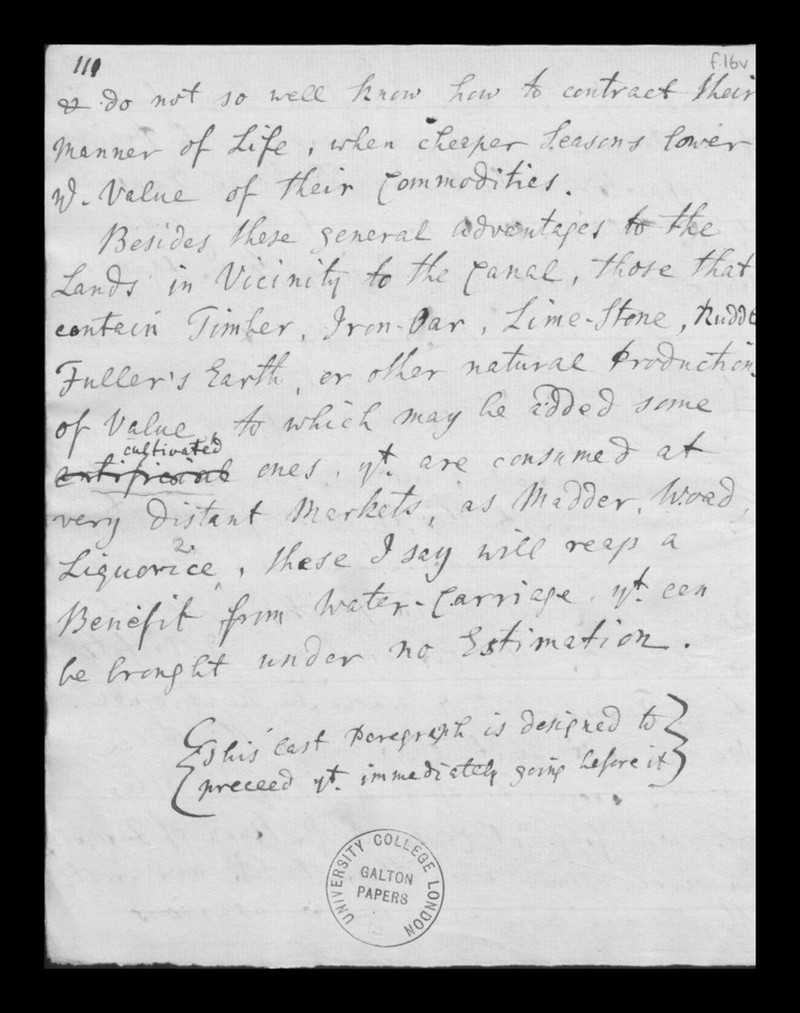 111
f.16v
& do not so well know how to contract their
Manner of Life, when cheaper Seasons lower
ye. Value of their Commodities.
Besides these general advantages to the
Lands in Vicinity to the Canal, those that
contain Timber, Iron-Oar, Lime-Stone, Rudd
Fuller's Earth, or other natural Production
of Value, to which may be added some
cultivated
artificial ones, yt. are consumed at
very distant Markets, as Madder, Woad,
Liquorice, these I say will reap a
Benefit from Water-Carriage, yt. can
be brought under no Estimation.
This last Paragraph is designed to
preceed yt. immediately going before it
UNIVERSITY COLLEGE LONDON
GALTON
PAPERS